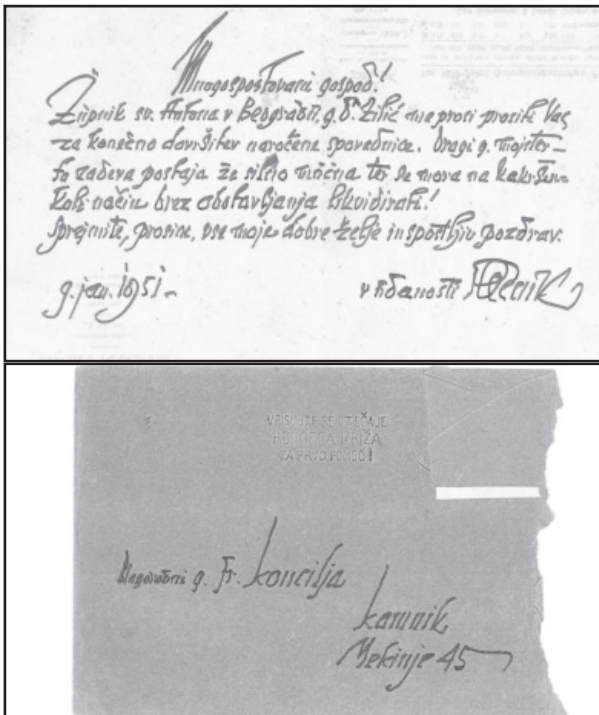 Mnogospoštovani gospod!
Župnik sv. Antona v Beogradu, g. dr. Zilić me prosi prositi Vas
za konečno dovršitev naročene spovednice. Dragi g. mojster –
ta zadeva postaja že silno mučna ter se mora na kakršen-
koli način brez obotavljanja likvidirati!
Sprejmite, prosim, vse moje dobre želje in spoštljiv pozdrav.
9. jan. 1951 – v vdanosti Plečnik
VPISUJTE SE V TEČAJE
RDEČEGA KRIŽA
ZA PRVO POMOČ!
g. Fr. Koncilja
Kamnik
Mekinje 45